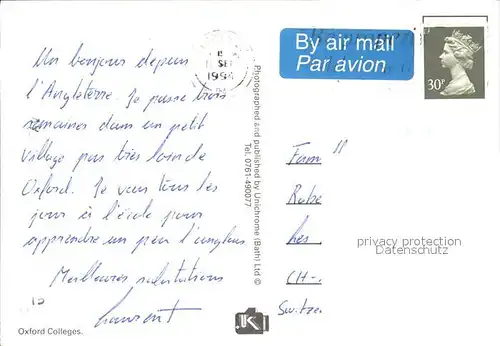 Un bonjour depuis
l'Angleterre. Je passe trois
semaines dans un petit
village pas très loin de
Oxford. Je vais tous les
jours à l'école pour
apprendre un peu d'anglais
Meilleures salutations
Laurent
Oxford Colleges.
SE
1994
Photographed and published by Unichrome (Bath) Ltd ©
Tel. 0761-490077
By air mail
Par avion
30P
Fam
Rabe
Les
CH-
Switze
privacy protection
Datenschutz